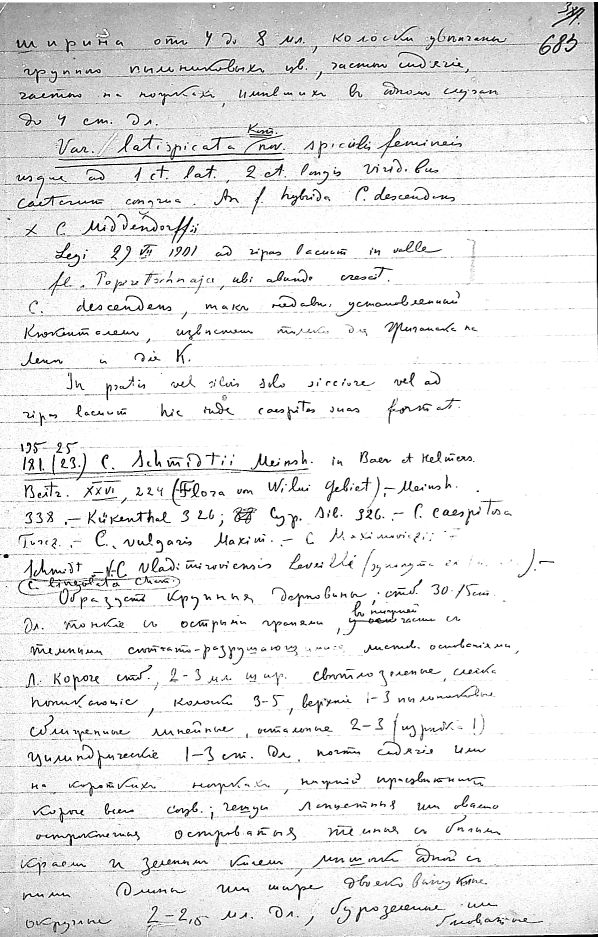 685
ширина отъ 4 до 8 мл., колоски
группою пыльниковыхъ цв., частью сидячіе,
частью на ножкахъ, въ одномъ случаѣ
до 4 ст. дл.
Kom.
Var. latispicata nov. spiculis femineis
usque ad 1 ct. lat., 2 ct. longis viridibus
caeterum congrua. An f. hybrida C. descendens
x C. Middendorffii
Legi 29 VII 1901 ad ripas lacuum in valle
fl. ubi abunde crescit.
C. descendens, такъ недавно установленный
Кюкенталемъ, извѣстенъ только для на
Ленѣ и для К.
In pratis vel silvis solo sicciore vel ad
ripas lacuum hic inde caespites suas format.
195 25
181 (23.) C. Schmidtii Meinsh. in Baer et Helmers.
Beitr. XXVI, 224 (Flora von Wilui Gebiet).- Meinsh.
338.- Kükenthal 326; Cyp. Sib. 326.- C. caespitosa
Turcz.- C. vulgaris Maxim.- C. Maximowiczii
Schmidt - C. vladimiroviensis Leveillé
C. lingulata Cham.
Образуетъ крупныя дерновины, стб. 30-75 ст.
дл. тонкіе съ острыми гранями, въ нижней части съ
темными сѣтчато-разрушающимися листов. основаніями,
Л. короче стб., 2-3 мл. шир. свѣтлозеленые, слегка
колоски 3-5, верхніе 1-3 пыльниковые
сближенные линейные, остальные 2-3 (изрѣдка 1)
цилиндрическіе 1-3 ст. дл. почти сидячіе или
на короткихъ ножкахъ, нижній прицвѣтникъ
короче всего соцв.; чешуи ланцетныя или овально
островатыя темныя съ бѣлымъ
краемъ и зеленымъ килемъ, мѣшочки одной съ
ними длины или шире двояковыпуклые
округлые 2-2,5 мл. дл., бурозеленые или